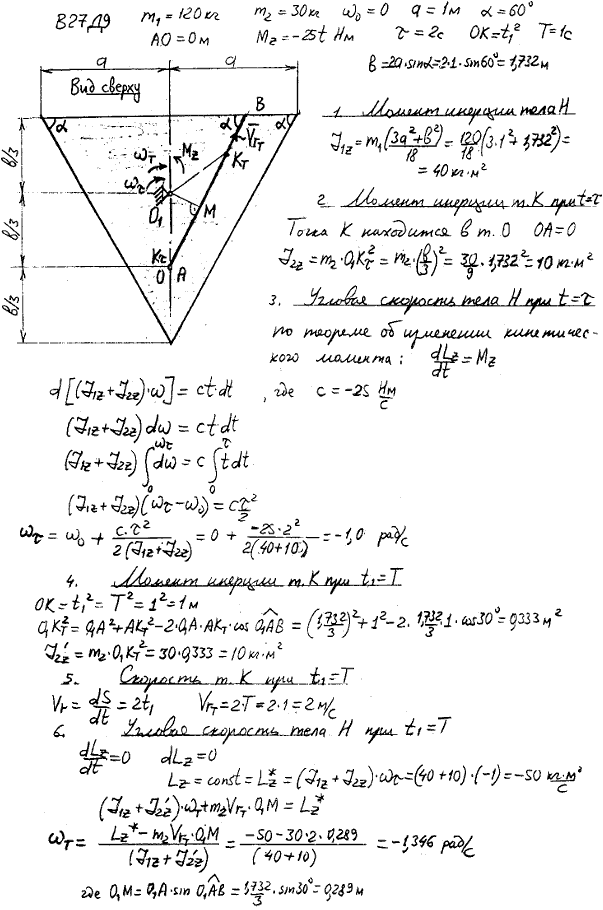 В27Д9 m₁=120кг m₂=30кг ω₀=0 a=1м α=60°
AO=0м M_z=-25t Нм τ=2c OK=t₁² T=1c
в=2a·sinα=2·1·sin60°=1,732м
a a
Вид сверху
B
α α α
V̄_rT
ω_T M_z K_T
ω_τ
O₁ M
K_τ
O A
в/3
в/3
в/3
1. Момент инерции тела H
J₁z=m₁(3a²+в²)/18=120/18(3·1²+1,732²)=
=40кг·м²
2. Момент инерции т. K при t=τ
Точка K находится в т. O OA=0
J₂z=m₂·O₁K_τ²=m₂·(в/3)²=30/9·1,732²=10кг·м²
3. Угловая скорость тела H при t=τ
по теореме об изменении кинетичес-
кого момента: dL_z/dt=M_z
d[(J₁z+J₂z)·ω]=ct·dt, где c=-25 Нм/с
(J₁z+J₂z)dω=ct·dt
(J₁z+J₂z)∫₀^ω_τ dω=c∫₀^τ t·dt
(J₁z+J₂z)(ω_τ-ω₀)=cτ²/2
ω_τ=ω₀+c·τ²/2(J₁z+J₂z)=0+-25·2²/2(40+10)=-1,0 рад/с
4. Момент инерции т. K при t₁=T
OK=t₁²=T²=1²=1м
O₁K_T²=O₁A²+AK_T²-2·O₁A·AK_T·cos O₁ÂB=(1,732/3)²+1²-2·1,732/3·1·cos30°=0,333м²
J₂z'=m₂·O₁K_T²=30·0,333=10кг·м²
5. Скорость т. K при t₁=T
V_r=dS/dt=2t₁ V_rT=2·T=2·1=2м/с
6. Угловая скорость тела H при t₁=T
dL_z/dt=0 dL_z=0
L_z=const=L_z*=(J₁z+J₂z)·ω_τ=(40+10)·(-1)=-50 кг·м²/с
(J₁z+J₂z')·ω_T+m₂V_rT·O₁M=L_z*
ω_T=L_z*-m₂V_rT·O₁M/(J₁z+J₂z')=-50-30·2·0,289/(40+10)=-1,346 рад/с
где O₁M=O₁A·sin O₁ÂB=1,732/3·sin30°=0,289м